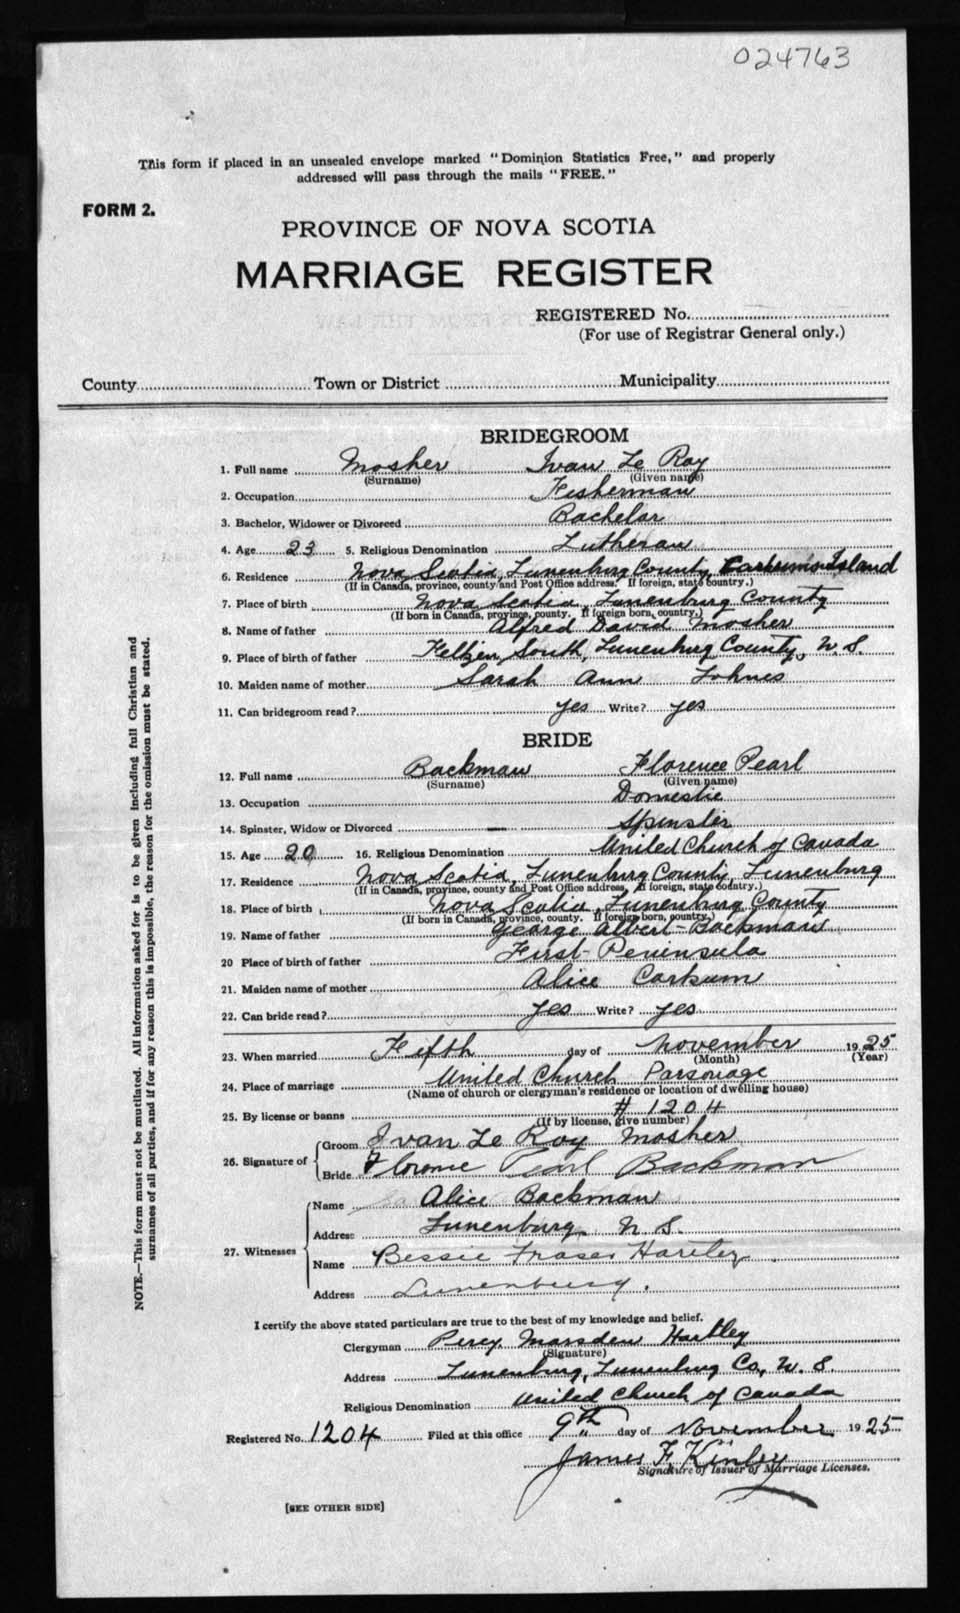 024763
This form if placed in an unsealed envelope marked "Dominion Statistics Free," and properly
addressed will pass through the mails "FREE."
FORM 2.
PROVINCE OF NOVA SCOTIA
MARRIAGE REGISTER
REGISTERED No.
(For use of Registrar General only.)
County Town or District Municipality
BRIDEGROOM
1. Full name Mosher Ivan Le Roy
(Surname) (Given name)
2. Occupation Fisherman
3. Bachelor, Widower or Divorced Bachelor
4. Age 23 5. Religious Denomination Lutheran
6. Residence Nova Scotia, Lunenburg County, Island
(If in Canada, province, county and Post Office address. If foreign, state country.)
7. Place of birth Nova Scotia, Lunenburg County
(If born in Canada, province, county. If foreign born, country.)
8. Name of father Alfred David Mosher
9. Place of birth of father South, Lunenburg County, N. S.
10. Maiden name of mother Sarah Ann
11. Can bridegroom read? yes Write? yes
BRIDE
12. Full name Backman Florence Pearl
(Surname) (Given name)
13. Occupation Domestic
14. Spinster, Widow or Divorced Spinster
15. Age 20 16. Religious Denomination United Church of Canada
17. Residence Nova Scotia, Lunenburg County, Lunenburg
(If in Canada, province, county and Post Office address. If foreign, state country.)
18. Place of birth Nova Scotia, Lunenburg County
(If born in Canada, province, county. If foreign born, country.)
19. Name of father George Albert Backman
20 Place of birth of father First Peninsula
21. Maiden name of mother Alice Corkum
22. Can bride read? yes Write? yes
23. When married Fifth day of November 1925
(Month) (Year)
24. Place of marriage United Church Parsonage
(Name of church or clergyman's residence or location of dwelling house)
25. By license or banns # 1204
(If by license, give number)
26. Signature of Groom Ivan Le Roy Mosher
Bride Florence Pearl Backman
27. Witnesses Name Alice Backman
Address Lunenburg N. S.
Name Bessie Fraser Hartley
Address Lunenburg.
I certify the above stated particulars are true to the best of my knowledge and belief.
Clergyman Percy Marsden Hartley
(Signature)
Address Lunenburg, Lunenburg Co, N. S.
Religious Denomination United Church of Canada
Registered No. 1204 Filed at this office 9th day of November 1925
James F Kinley
Signature of Issuer of Marriage Licenses.
[SEE OTHER SIDE]
NOTE.—This form must not be mutilated. All information asked for is to be given including full Christian and
surnames of all parties, and if for any reason this is impossible, the reason for the omission must be stated.